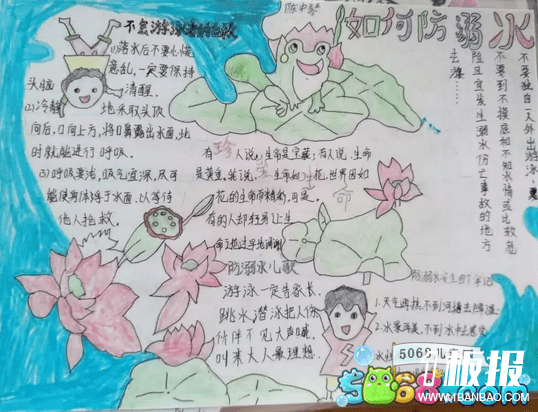 如何防溺水
陈中琴
不会游泳者的自救
(1)落水后不要心慌
意乱,一定要保持
头脑清醒。
(2)冷静地采取头顶
向后,口向上方,将口鼻露出水面,此
时就能进行呼吸。
(3)呼吸要浅,吸气宜深,尽可
能使身体浮于水面,以等待
他人抢救。
珍 生命
有人说,生命是宝藏;有人说,生命
是黄金,我说,生命如一花,世界因如
花的生命而精彩,可是,
有的人却轻易让生
防溺水儿歌
游泳一定告家长,
跳水潜泳把人伤
伙伴不见大声喊,
叫来大人最理想
不要独自一人外出游泳,更
不要到不摸底和不知水情或比较危
险且宜发生溺水伤亡事故的地方
去游……
1.天气再热,不到河塘去降温
2.水景再美,不到水中去
5068儿童网
板报
WWW.1BANBAO.COM